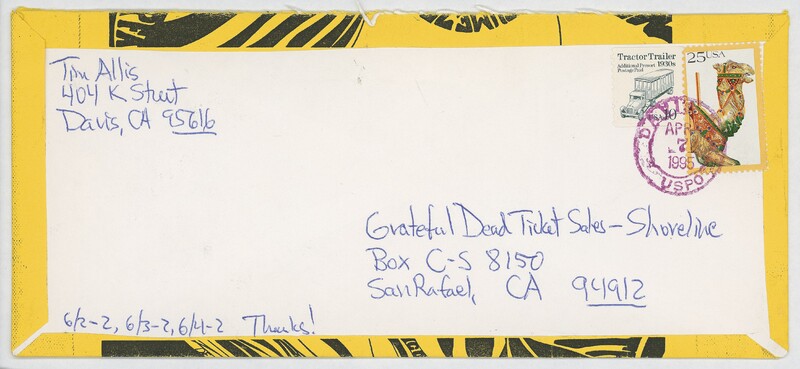 Tim Allis
404 K Street
Davis, CA 95616
Tractor Trailer
Additional Presort 1930s
Postage Paid
25USA
APR
7
1995
USPO
Grateful Dead Ticket Sales - Shoreline
Box C-S 8150
San Rafael, CA 94912
6/2-2, 6/3-2, 6/4-2 Thanks!